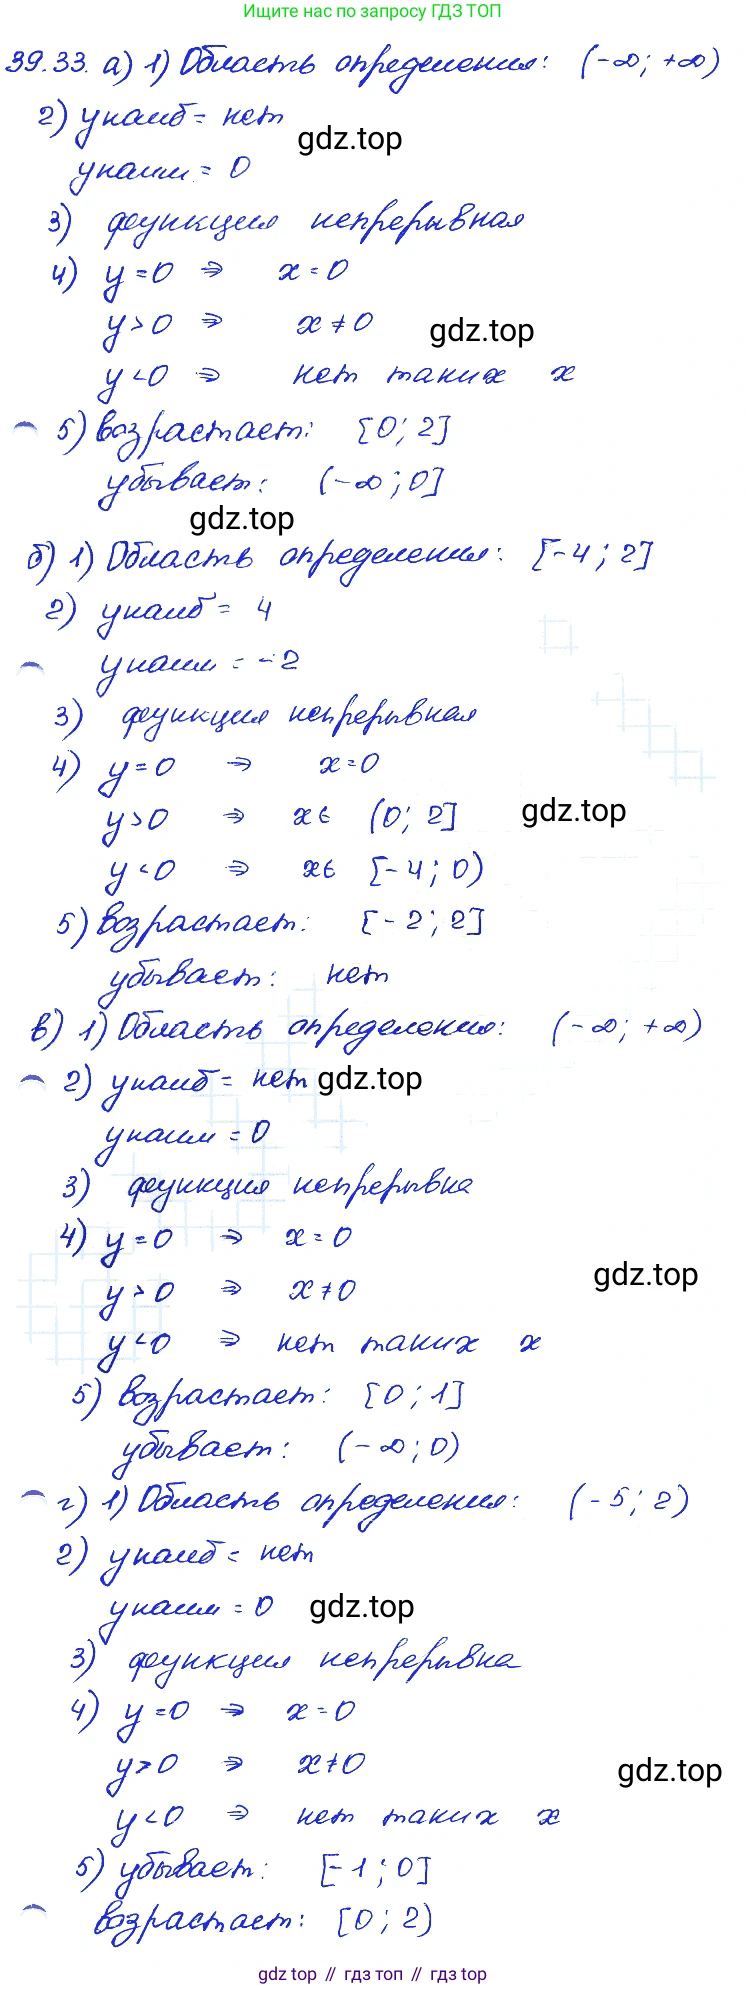 Ищите нас по запросу ГДЗ ТОП
39.33. а) 1) Область определения: (-∞; +∞)
2) yнаиб = нет
gdz.top
yнаим. = 0
3) функция непрерывная
4) y=0 ⇒ x=0
y>0 ⇒ x≠0
gdz.top
y<0 ⇒ нет таких x
5) возрастает: [0; 2]
убывает: (-∞; 0]
gdz.top
б) 1) Область определения: [-4; 2]
2) yнаиб = 4
yнаим = -2
3) функция непрерывная
4) y=0 ⇒ x=0
y>0 ⇒ x∈ (0; 2]
gdz.top
y<0 ⇒ x∈ [-4; 0)
5) возрастает: [-2; 2]
убывает: нет
в) 1) Область определения: (-∞; +∞)
2) yнаиб = нет
gdz.top
yнаим = 0
3) функция непрерывна
4) y=0 ⇒ x=0
gdz.top
y>0 ⇒ x≠0
y<0 ⇒ нет таких x
5) возрастает: [0; 1]
убывает: (-∞; 0)
г) 1) Область определения: (-5; 2)
2) yнаиб = нет
yнаим = 0
gdz.top
3) функция непрерывна
4) y=0 ⇒ x=0
y>0 ⇒ x≠0
gdz.top
y<0 ⇒ нет таких x
5) убывает: [-1; 0]
возрастает: [0; 2)
gdz top // гдз топ // гдз top